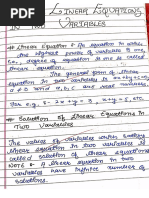 Linear Equations
in two Variables
# Linear Equation :- An equation in which
the highest power of variable is one,
i.e., degree of equation is one is called
linear equation.
The general form of linear
equation in two variables is
For e.g. 5 - 2x + y = 3, x + y = 5, etc.
# Solution of Linear Equations in
Two Variables
The values of variables which satisfy
linear equation in two variables is
called solution of linear equations
Note :- A linear equation in two
variables have infinite number of
solutions.